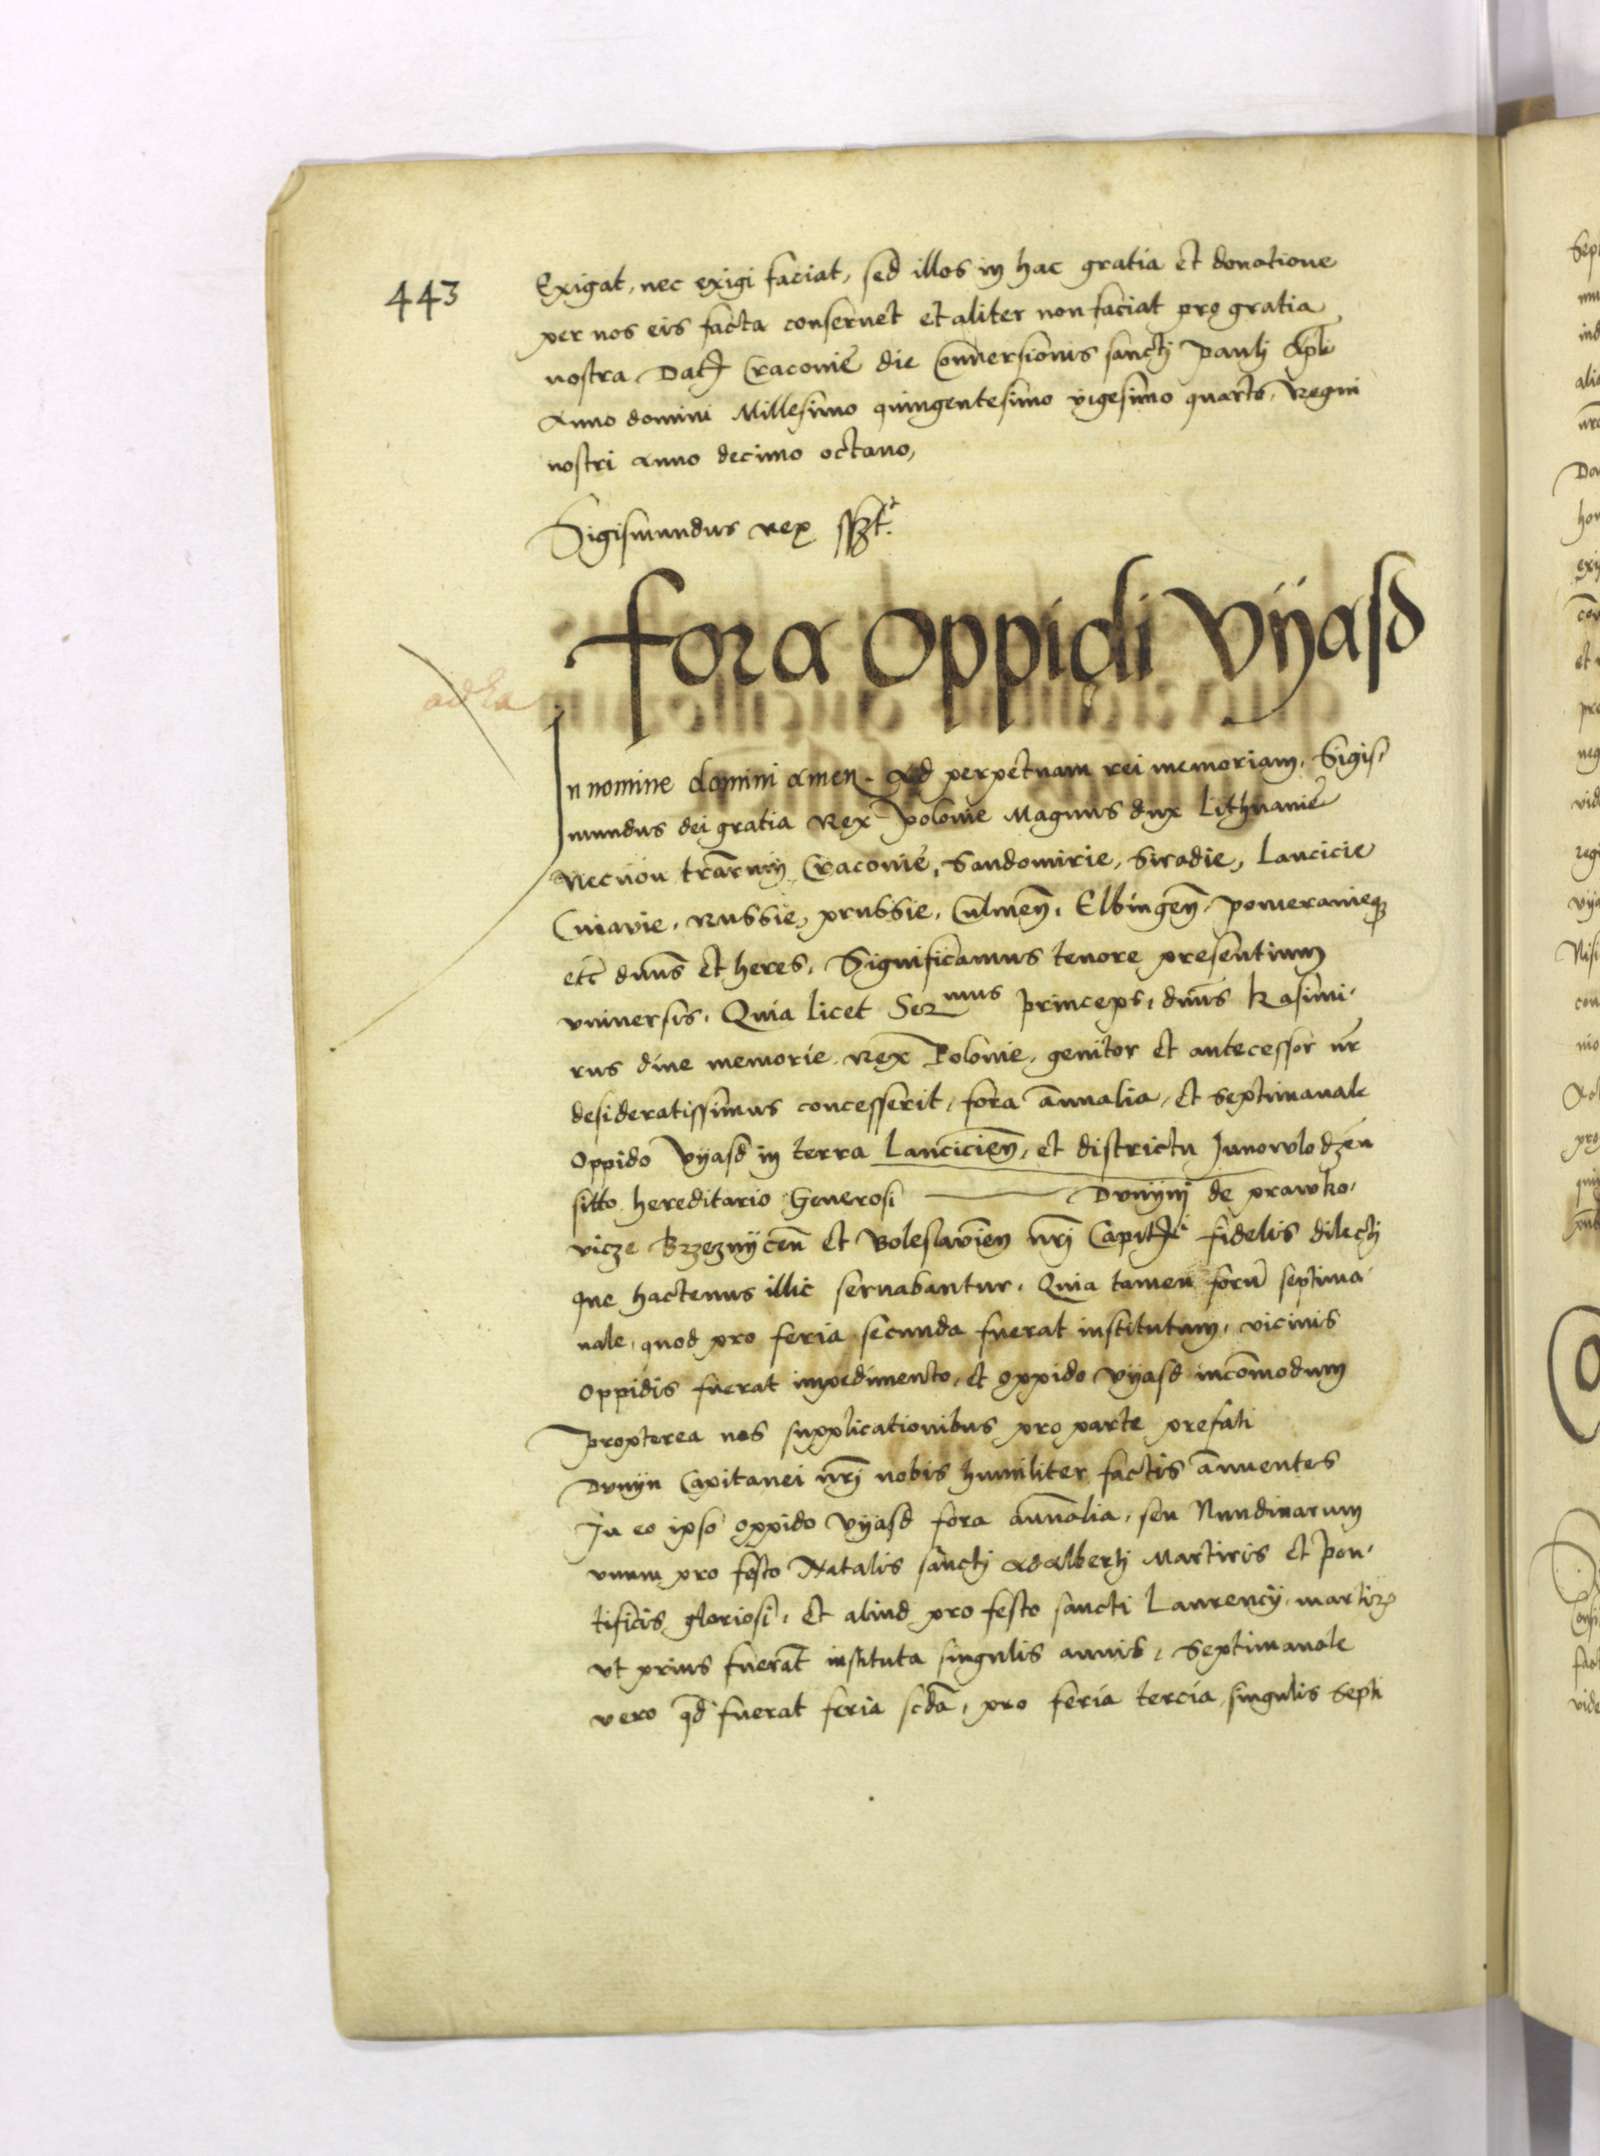 443
Exigat, nec exigi faciat, sed illos in hac gratia et donatione
per nos eis facta conseruet et aliter non faciat pro gratia
nostra Datum Cracovie die Conversionis sanctj Paulj Apli
Anno domini Millesimo quingentesimo vigesimo quarto, Regni
nostri Anno decimo octavo,
Sigismundus Rex
Fora Oppidi Vyasd
In nomine domini amen. Ad perpetuam rei memoriam. Sigis-
mundus dei gratia Rex Polonie Magnus dux Lithuanie
Necnon trarum Cracovie, Sandomirie, Siradie, Lancicie
Cuiavie, Russie, prussie, Culmen, Elbingen, pomeranieque
etc dnus et heres. Significamus tenore presentium
vniuersis. Quia licet Sermus princeps, dnus Kasimi-
rus dive memorie Rex Polonie, genitor et antecessor nr
desideratissimus concesserit, fora annalia, et septimanale
Oppido Vyasd in terra Lancicien, et districtu Inowlodzen
sitto hereditario Generosi Dunynj de prawko-
vicze Brzeznycen et Boleslavien nrj Capitnei fidelis dilectj
que hactenus illic seruabantur. Quia tamen foru septima-
nale, quod pro feria secunda fuerat institutum, vicinis
Oppidis fuerat impedimento, et oppido Vyasd incomodum
propterea nos supplicationibus pro parte prefati
Dunyn Capitanei nrj nobis humiliter factis annuentes
In eo ipso oppido Vyasd fora annalia, seu Nundinarum
vnum pro festo Natalis sanctj Adalbertj Martiris et Pon-
tificis gloriosi, et aliud pro festo sancti Laurencij martiris
vt prius fuerat instituta singulis annis, Septimanale
vero qd fuerat feria scda, pro feria tercia singulis Septi